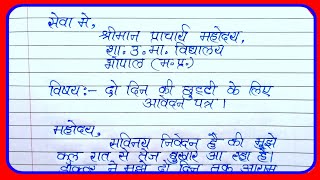 सेवा मे,
श्रीमान प्राचार्य महोदय,
शा. उ. मा. विद्यालय
भोपाल (म.प्र.)
विषय:- दो दिन की छुट्टी के लिए
आवेदन पत्र।
महोदय,
सविनय निवेदन है की मुझे
कल रात से तेज बुखार आ रहा है।
डॉक्टर ने मुझे दो दिन तक आराम